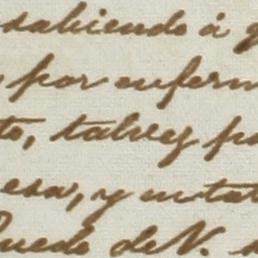 sabiendo á
por enferm
to, talvez pa
esa, y
Quedo de V.